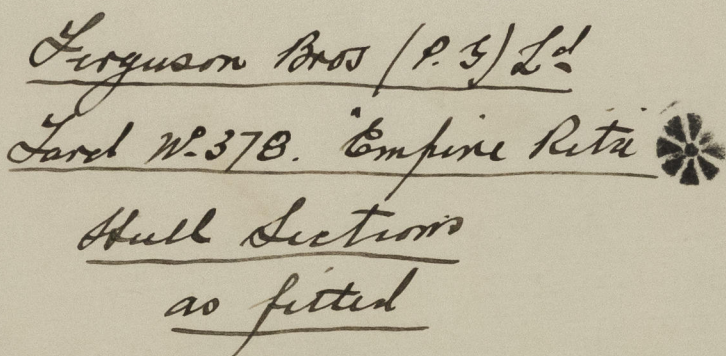 Ferguson Bros (P.G) Ld
Yard No 378. "Empire Rita"
Hull Sections
as fitted